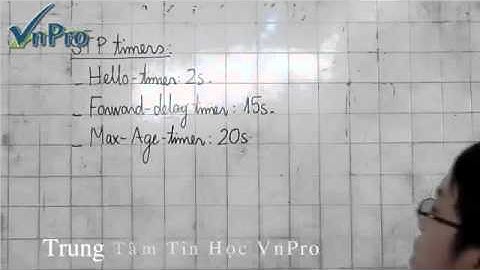 VnPro
STP timers:
- Hello-timer: 2s.
- Forward-delay timer: 15s.
- Max-Age-timer: 20s
Trung Tâm Tin Học VnPro